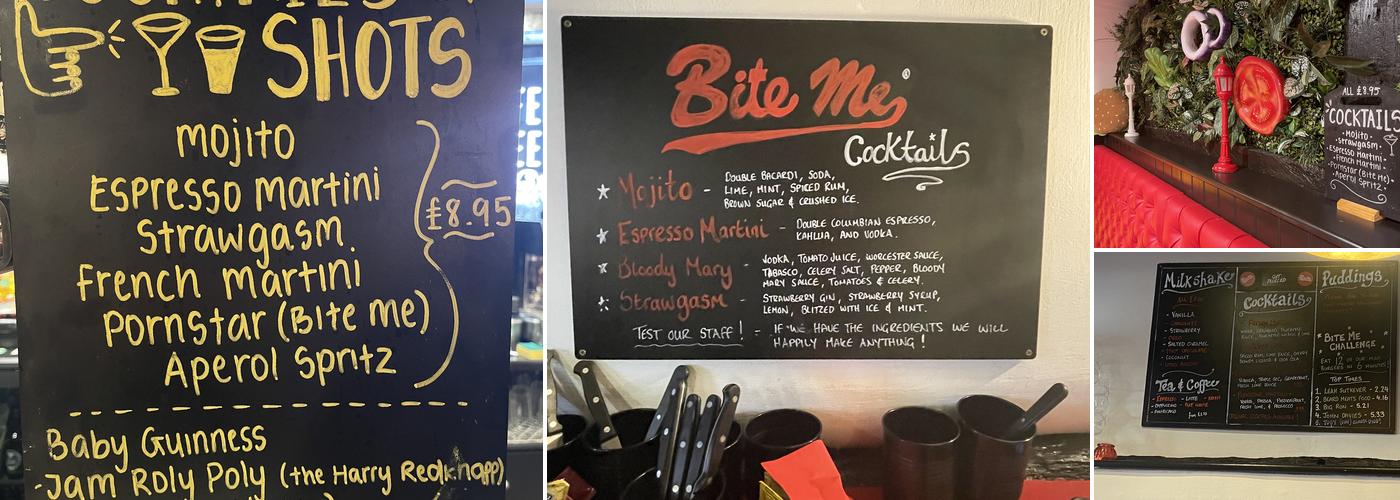 SHOTS
Mojito
Espresso Martini
Strawgasm
French martini
Pornstar (Bite me)
Aperol Spritz
£8.95
Baby Guinness
Jam Roly Poly (the Harry Redknapp)
Bite Me
Cocktails
Mojito - DOUBLE BACARDI, SODA,
LIME, MINT, SPICED RUM,
BROWN SUGAR & CRUSHED ICE.
Espresso Martini - DOUBLE COLUMBIAN ESPRESSO,
KAHLUA, AND VODKA.
Bloody Mary - VODKA, TOMATO JUICE, WORCESTER SAUCE,
TABASCO, CELERY SALT, PEPPER, BLOODY
MARY SAUCE, TOMATOES & CELERY.
Strawgasm - STRAWBERRY GIN, STRAWBERRY SYRUP,
LEMON, BLITZED WITH ICE & MINT.
TEST OUR STAFF! - IF WE HAVE THE INGREDIENTS WE WILL
HAPPILY MAKE ANYTHING!
ALL £8.95
COCKTAILS
Mojito
Strawgasm
Espresso Martini
French Martini
Pornstar (Bite Me)
Aperol Spritz
Milkshakes
- VANILLA
- STRAWBERRY
- OREO
- SALTED CARAMEL
- COCONUT
Tea & Coffee
- ESPRESSO - LATTE
Cocktails
Puddings
BITE ME
CHALLENGE
EAT 12 OF OUR MINI
BURGERS IN 6 MINUTES
TOP TIMES
1. LEAH SUTKEVER - 2.24
2. BEARD MEATS FOOD - 4.16
3. BIG RON - 5.21
4. JOHN DAVIES - 5.33